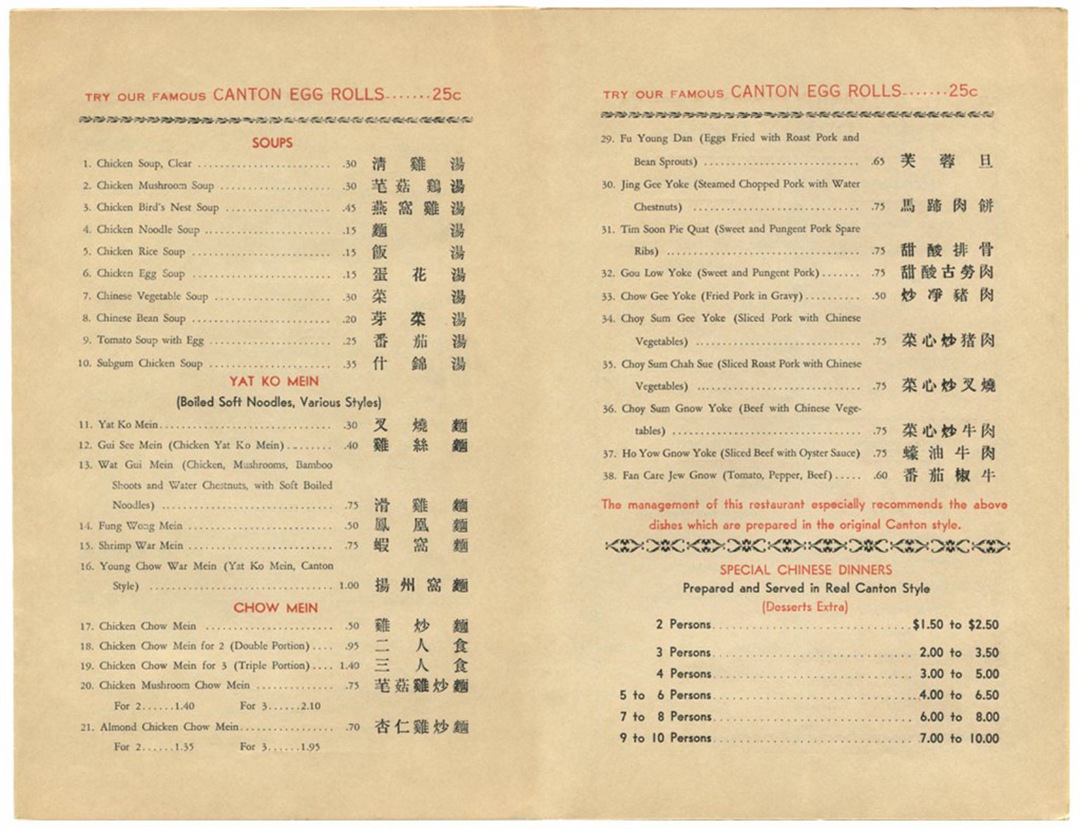 TRY OUR FAMOUS CANTON EGG ROLLS.......25c
SOUPS
1. Chicken Soup, Clear .............................. .30 清雞湯
2. Chicken Mushroom Soup .......................... .30 芼菇鷄湯
3. Chicken Bird's Nest Soup ........................ .45 燕窩雞湯
4. Chicken Noodle Soup ............................. .15 麵湯
5. Chicken Rice Soup ................................ .15 飯湯
6. Chicken Egg Soup ................................ .15 蛋花湯
7. Chinese Vegetable Soup .......................... .30 菜湯
8. Chinese Bean Soup ............................... .20 芽菜湯
9. Tomato Soup with Egg ............................ .25 番茄湯
10. Subgum Chicken Soup ........................... .35 什錦湯
YAT KO MEIN
(Boiled Soft Noodles, Various Styles)
11. Yat Ko Mein...................................... .30 叉燒麵
12. Gui See Mein (Chicken Yat Ko Mein)........ .40 雞絲麵
13. Wat Gui Mein (Chicken, Mushrooms, Bamboo
Shoots and Water Chestnuts, with Soft Boiled
Noodles) ...................................... .75 滑雞麵
14. Fung Wong Mein ................................. .50 鳳凰麵
15. Shrimp War Mein ................................ .75 蝦窩麵
16. Young Chow War Mein (Yat Ko Mein, Canton
Style) ......................................... 1.00 揚州窩麵
CHOW MEIN
17. Chicken Chow Mein .............................. .50 雞炒麵
18. Chicken Chow Mein for 2 (Double Portion).... .95 二人食
19. Chicken Chow Mein for 3 (Triple Portion).... 1.40 三人食
20. Chicken Mushroom Chow Mein ............... .75 芼菇雞炒麵
For 2......1.40 For 3......2.10
21. Almond Chicken Chow Mein................... .70 杏仁雞炒麵
For 2......1.35 For 3......1.95
TRY OUR FAMOUS CANTON EGG ROLLS.......25c
29. Fu Young Dan (Eggs Fried with Roast Pork and
Bean Sprouts) ................................. .65 芙蓉旦
30. Jing Gee Yoke (Steamed Chopped Pork with Water
Chestnuts) .................................... .75 馬蹄肉餅
31. Tim Soon Pie Quat (Sweet and Pungent Pork Spare
Ribs) .......................................... .75 甜酸排骨
32. Gou Low Yoke (Sweet and Pungent Pork)....... .75 甜酸古勞肉
33. Chow Gee Yoke (Fried Pork in Gravy).......... .50 炒凈豬肉
34. Choy Sum Gee Yoke (Sliced Pork with Chinese
Vegetables) ................................... .75 菜心炒猪肉
35. Choy Sum Chah Sue (Sliced Roast Pork with Chinese
Vegetables) ................................... .75 菜心炒叉燒
36. Choy Sum Gnow Yoke (Beef with Chinese Vege-
tables) ........................................ .75 菜心炒牛肉
37. Ho Yow Gnow Yoke (Sliced Beef with Oyster Sauce) .75 蠔油牛肉
38. Fan Care Jew Gnow (Tomato, Pepper, Beef)..... .60 番茄椒牛
The management of this restaurant especially recommends the above
dishes which are prepared in the original Canton style.
SPECIAL CHINESE DINNERS
Prepared and Served in Real Canton Style
(Desserts Extra)
2 Persons.....................................$1.50 to $2.50
3 Persons..................................... 2.00 to 3.50
4 Persons..................................... 3.00 to 5.00
5 to 6 Persons.....................................4.00 to 6.50
7 to 8 Persons..................................... 6.00 to 8.00
9 to 10 Persons.....................................7.00 to 10.00